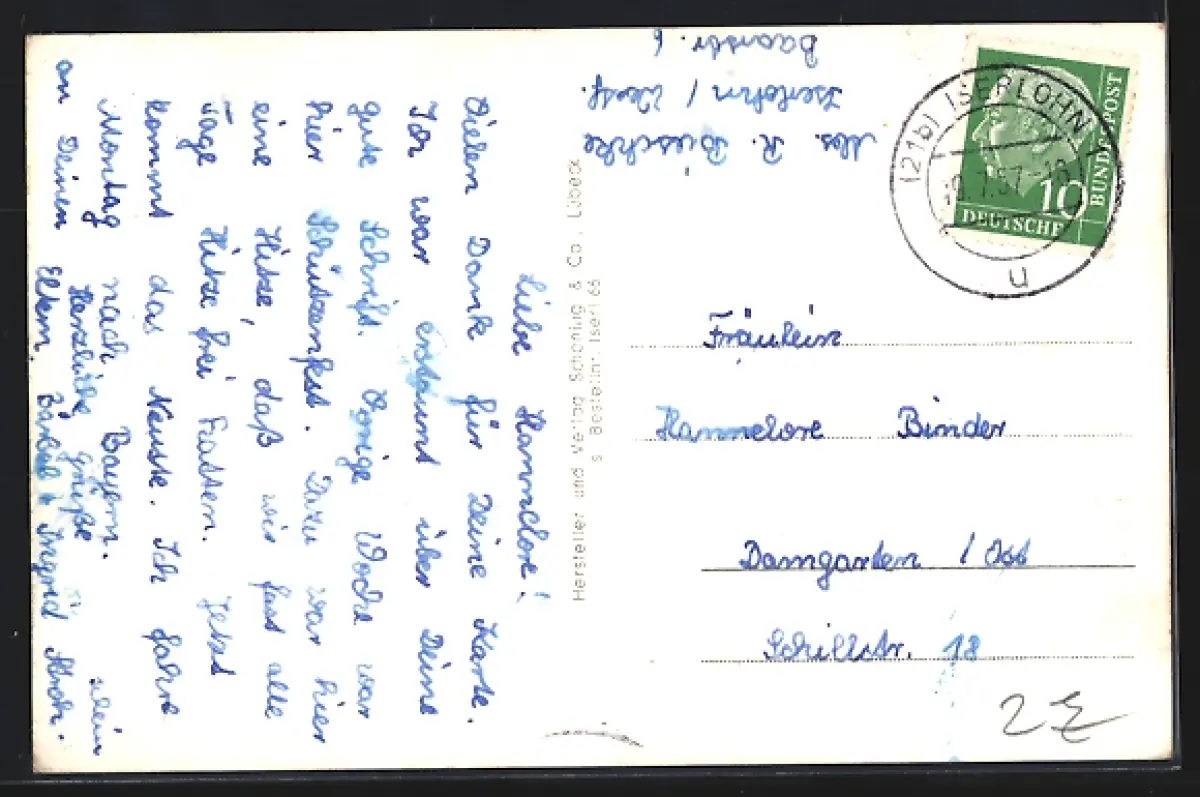 Liebe Hannelore!
Vielen Dank für Deine Karte.
Ich war erstaunt über Deine
gute Schrift. Vorige Woche war
hier Schützenfest. Dazu war hier
eine Hitze, daß wir fast alle
Tage Hitze frei hatten. Jetzt
kommt das Neuste. Ich fahre
Montag nach Bayern. allein
Herzliche Grüße
an Deinen Eltern. Bärbel & Ingrid
Abs. R. Bieschke
Iserlohn / Westf.
Baarstr. 6
Hersteller und Verlag Schöning & Co., Lübeck
s Bestellnr. Iserl 66
(21b) ISERLOHN
.7.57.-18
u
10
DEUTSCHE
BUNDESPOST
Fräulein
Hannelore Binder
Damgarten / Ost
Schillstr. 18